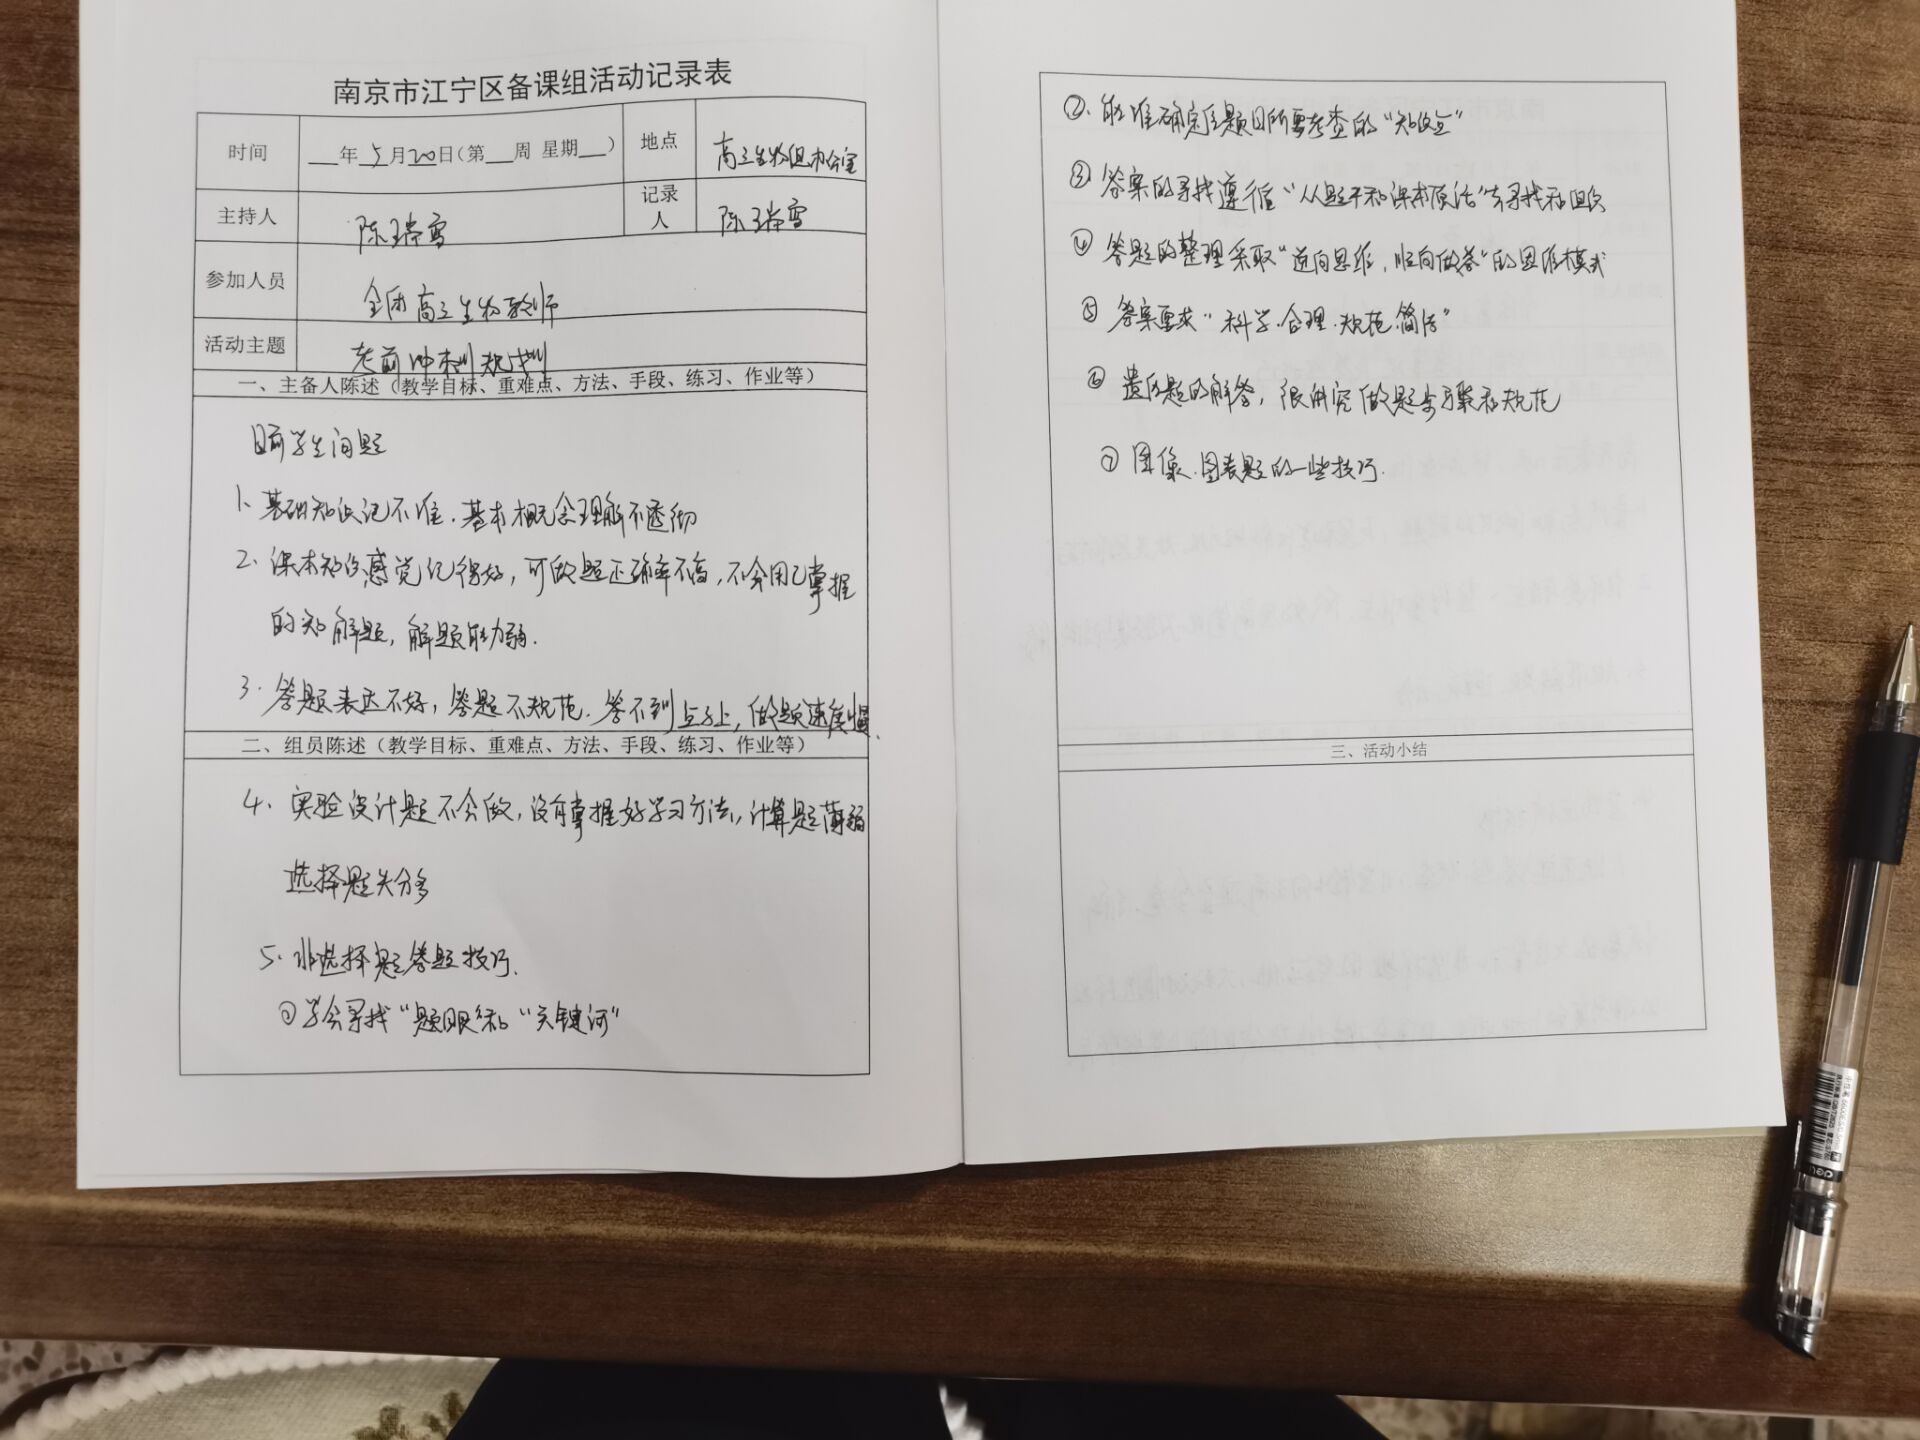 南京市江宁区备课组活动记录表
时间 ___年 5 月 20 日(第___周 星期___) 地点 高三生物组办公室
主持人 陈瑞雪 记录人 陈瑞雪
参加人员 全体高三生物教师
活动主题 考前冲刺规划
一、主备人陈述(教学目标、重难点、方法、手段、练习、作业等)
目前学生问题
1、基础知识记不准.基本概念理解不透彻
2、课本知识感觉记得好,可做题正确率不高,不会用已掌握
的知解题,解题能力弱.
3.答题表达不好,答题不规范.答不到点子上,做题速度慢.
二、组员陈述(教学目标、重难点、方法、手段、练习、作业等)
4、实验设计题不会做,没有掌握好学习方法,计算题薄弱
选择题失分多
5、非选择题答题技巧.
①学会寻找“题眼”和“关键词”
②.能准确定位题目所要考查的“知识点”
③答案的寻找遵循“从题干和课本原话”去寻找和组织
④答题的整理采取“逆向思维,顺向做答”的思维模式
⑤答案要求“科学.合理.规范.简洁”
⑥遗传题的解答,很讲究做题步骤和规范
⑦图像.图表题的一些技巧.
三、活动小结
deli